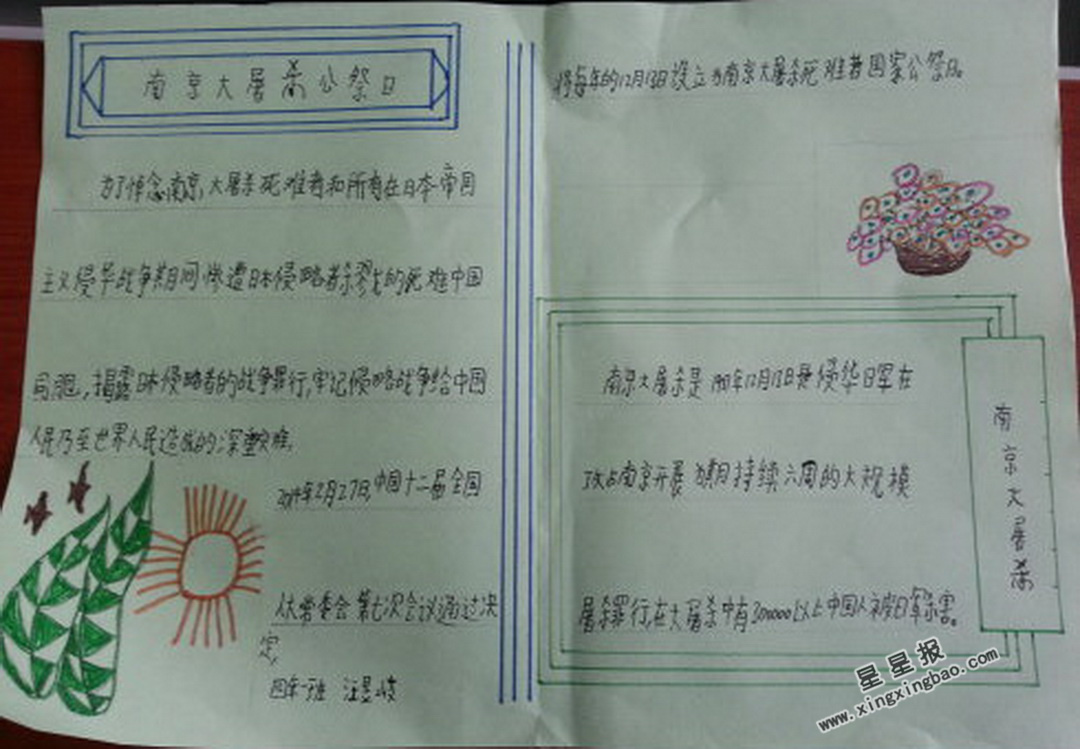 南京大屠杀公祭日
为了悼念南京,大屠杀死难者和所有在日本帝国
主义侵华战争期间惨遭日本侵略者杀戮的死难中国
同胞,揭露日本侵略者的战争罪行,牢记侵略战争给中国
人民乃至世界人民造成的深重灾难,
2014年2月27日,中国十二届全国
人大常委会第七次会议通过决
定,
四年一班 汪
将每年的12月13日设立为南京大屠杀死难者国家公祭日。
南京大屠杀是 年12月 日 侵华日军在
攻占南京开展为期持续六周的大规模
屠杀罪行,在大屠杀中有300000以上中国人被日军杀害。
南京大屠杀
星星报
www.xingxingbao.com